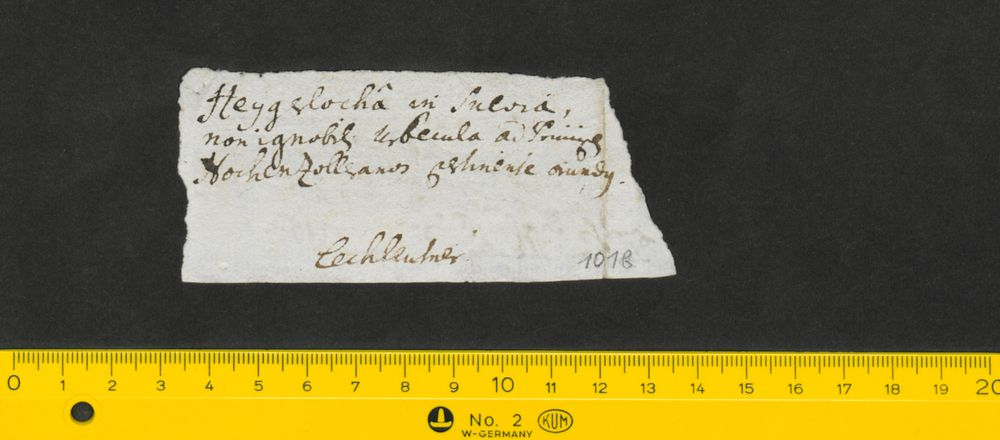 Heygerlochâ in Suevia,
non ignobili urbecula ad Princip
Hochen Zolleranos pertinente oriundus.
Lechleutner
1018
0 1 2 3 4 5 6 7 8 9 10 11 12 13 14 15 16 17 18 19 20
No. 2 KUM
W-GERMANY